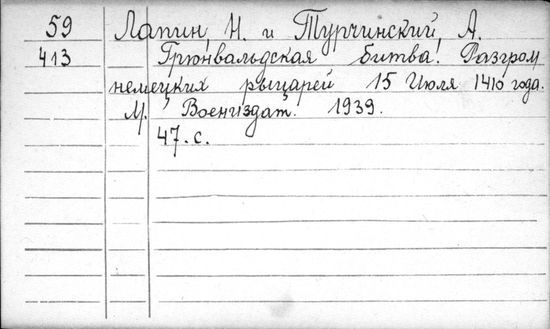 59 Лапин, Н. и Турчинский, А.
413 Грюнвальдская битва. Разгром
немецких рыцарей 15 Июля 1410 года.
М. Воениздат. 1939.
47. с.